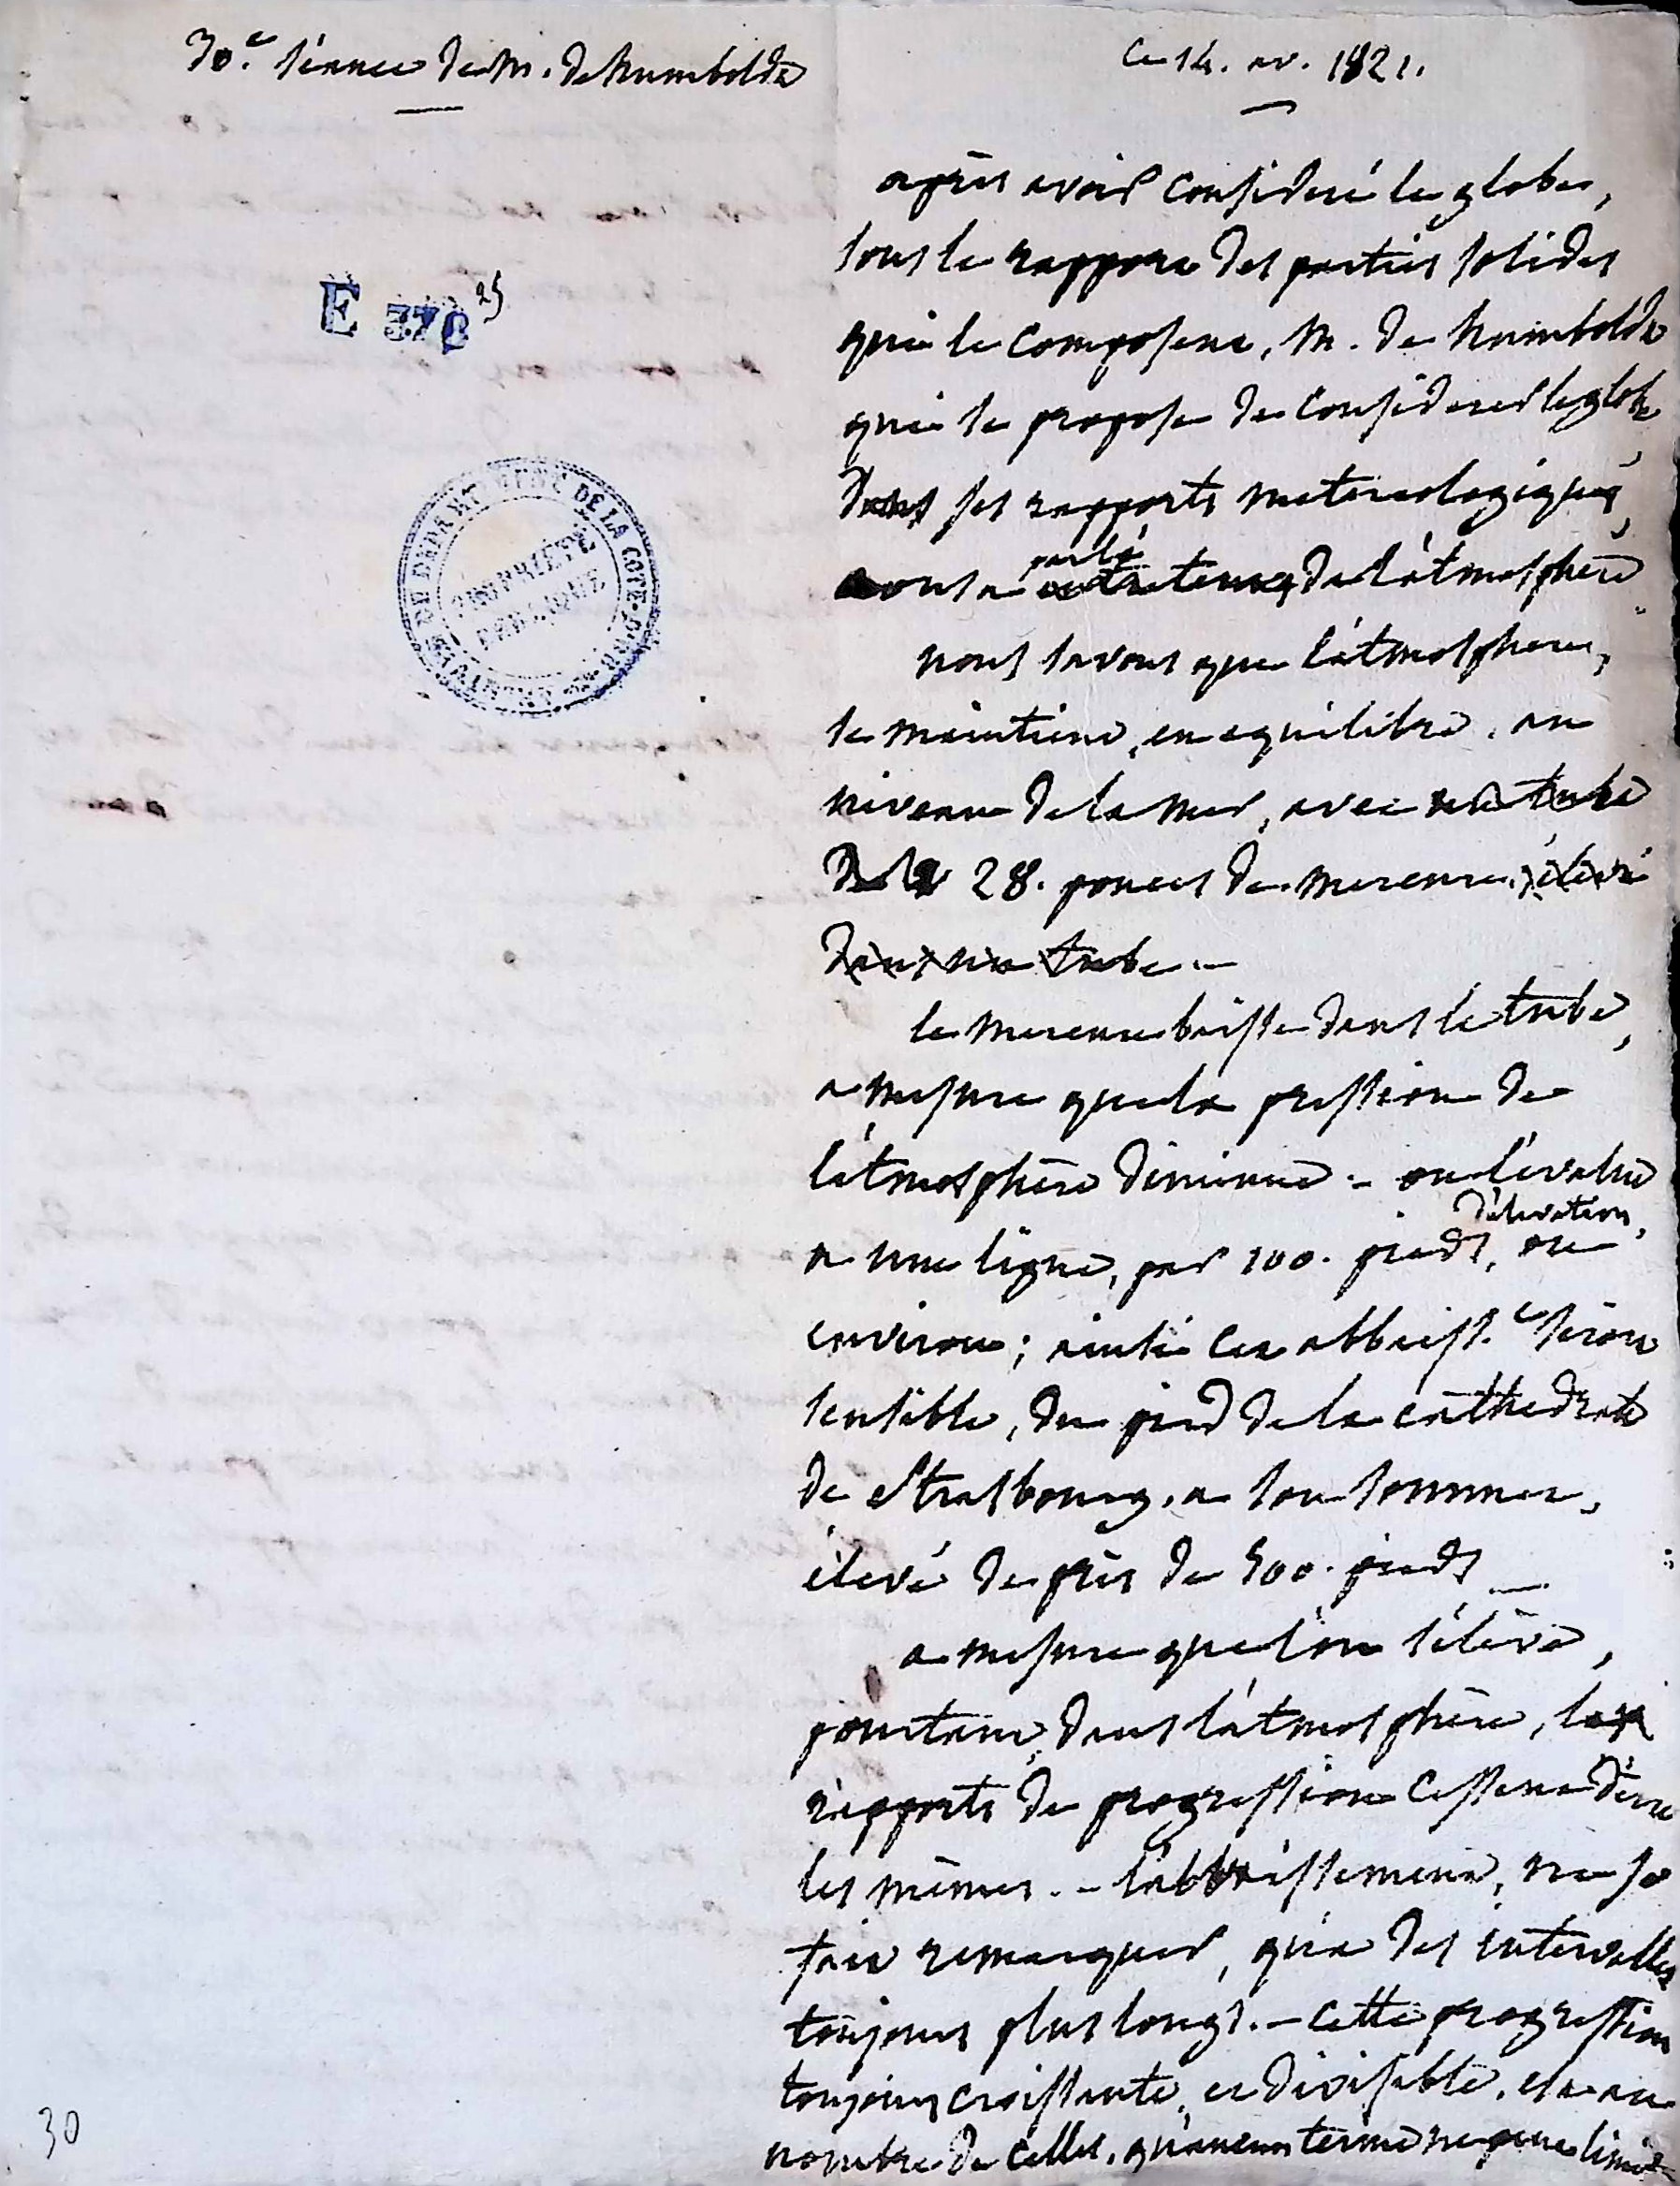 30.e séance de M. de humboldt
Ce 14. av. 1821.
E 378 25
ARCHIVES DU DEPARTEMENT DE LA COTE-D'OR
PROPRIÉTÉ PUBLIQUE
après avoir consideré le globe,
sous le rapport des parties solides
qui le composent, M. de humboldt
qui se propose de considerer le globe
dans ses rapports meteréologiques,
nous a parlé de l'atmosphère
nous savons que l'atmosphere,
se maintient, en equilibre, au
niveau de la mer, avec un tube
de 28. pouces de mercure, élevé
dans un tube. —
le mercure baisse dans le tube,
a mesure que la pression de
l'atmosphère diminue. — on l'évalue
a une ligne, par 100. pieds, d'élévation, ou
environ ; ainsi cet abbaiss.t seroit
sensible, du pied de la cathedrale
de Strasbourg, a son sommet,
élevé de près de 500. pieds —
a mesure que l'on s'élève,
pourtant, dans l'atmosphère, les
rapports de progression cessent d'etre
les mêmes. — l'abbaissement, ne se
fait remarquer, qu'a des intervalles
toujours plus longs. — Cette progression
toujours croissante, et divisible, est au
nombre de celles, qu'aucun terme ne peut limiter
30